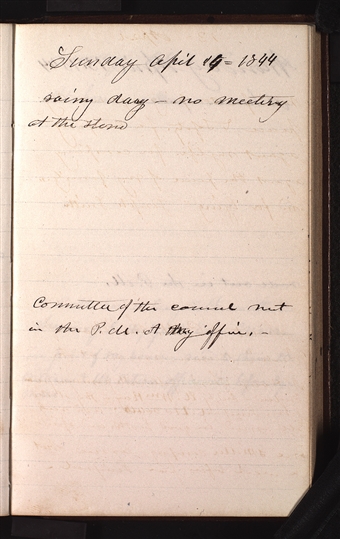 Sunday April 14 = 1844
rainy day — no meeting
at the stand
Committee of the council met
in the P.M. at my office, —